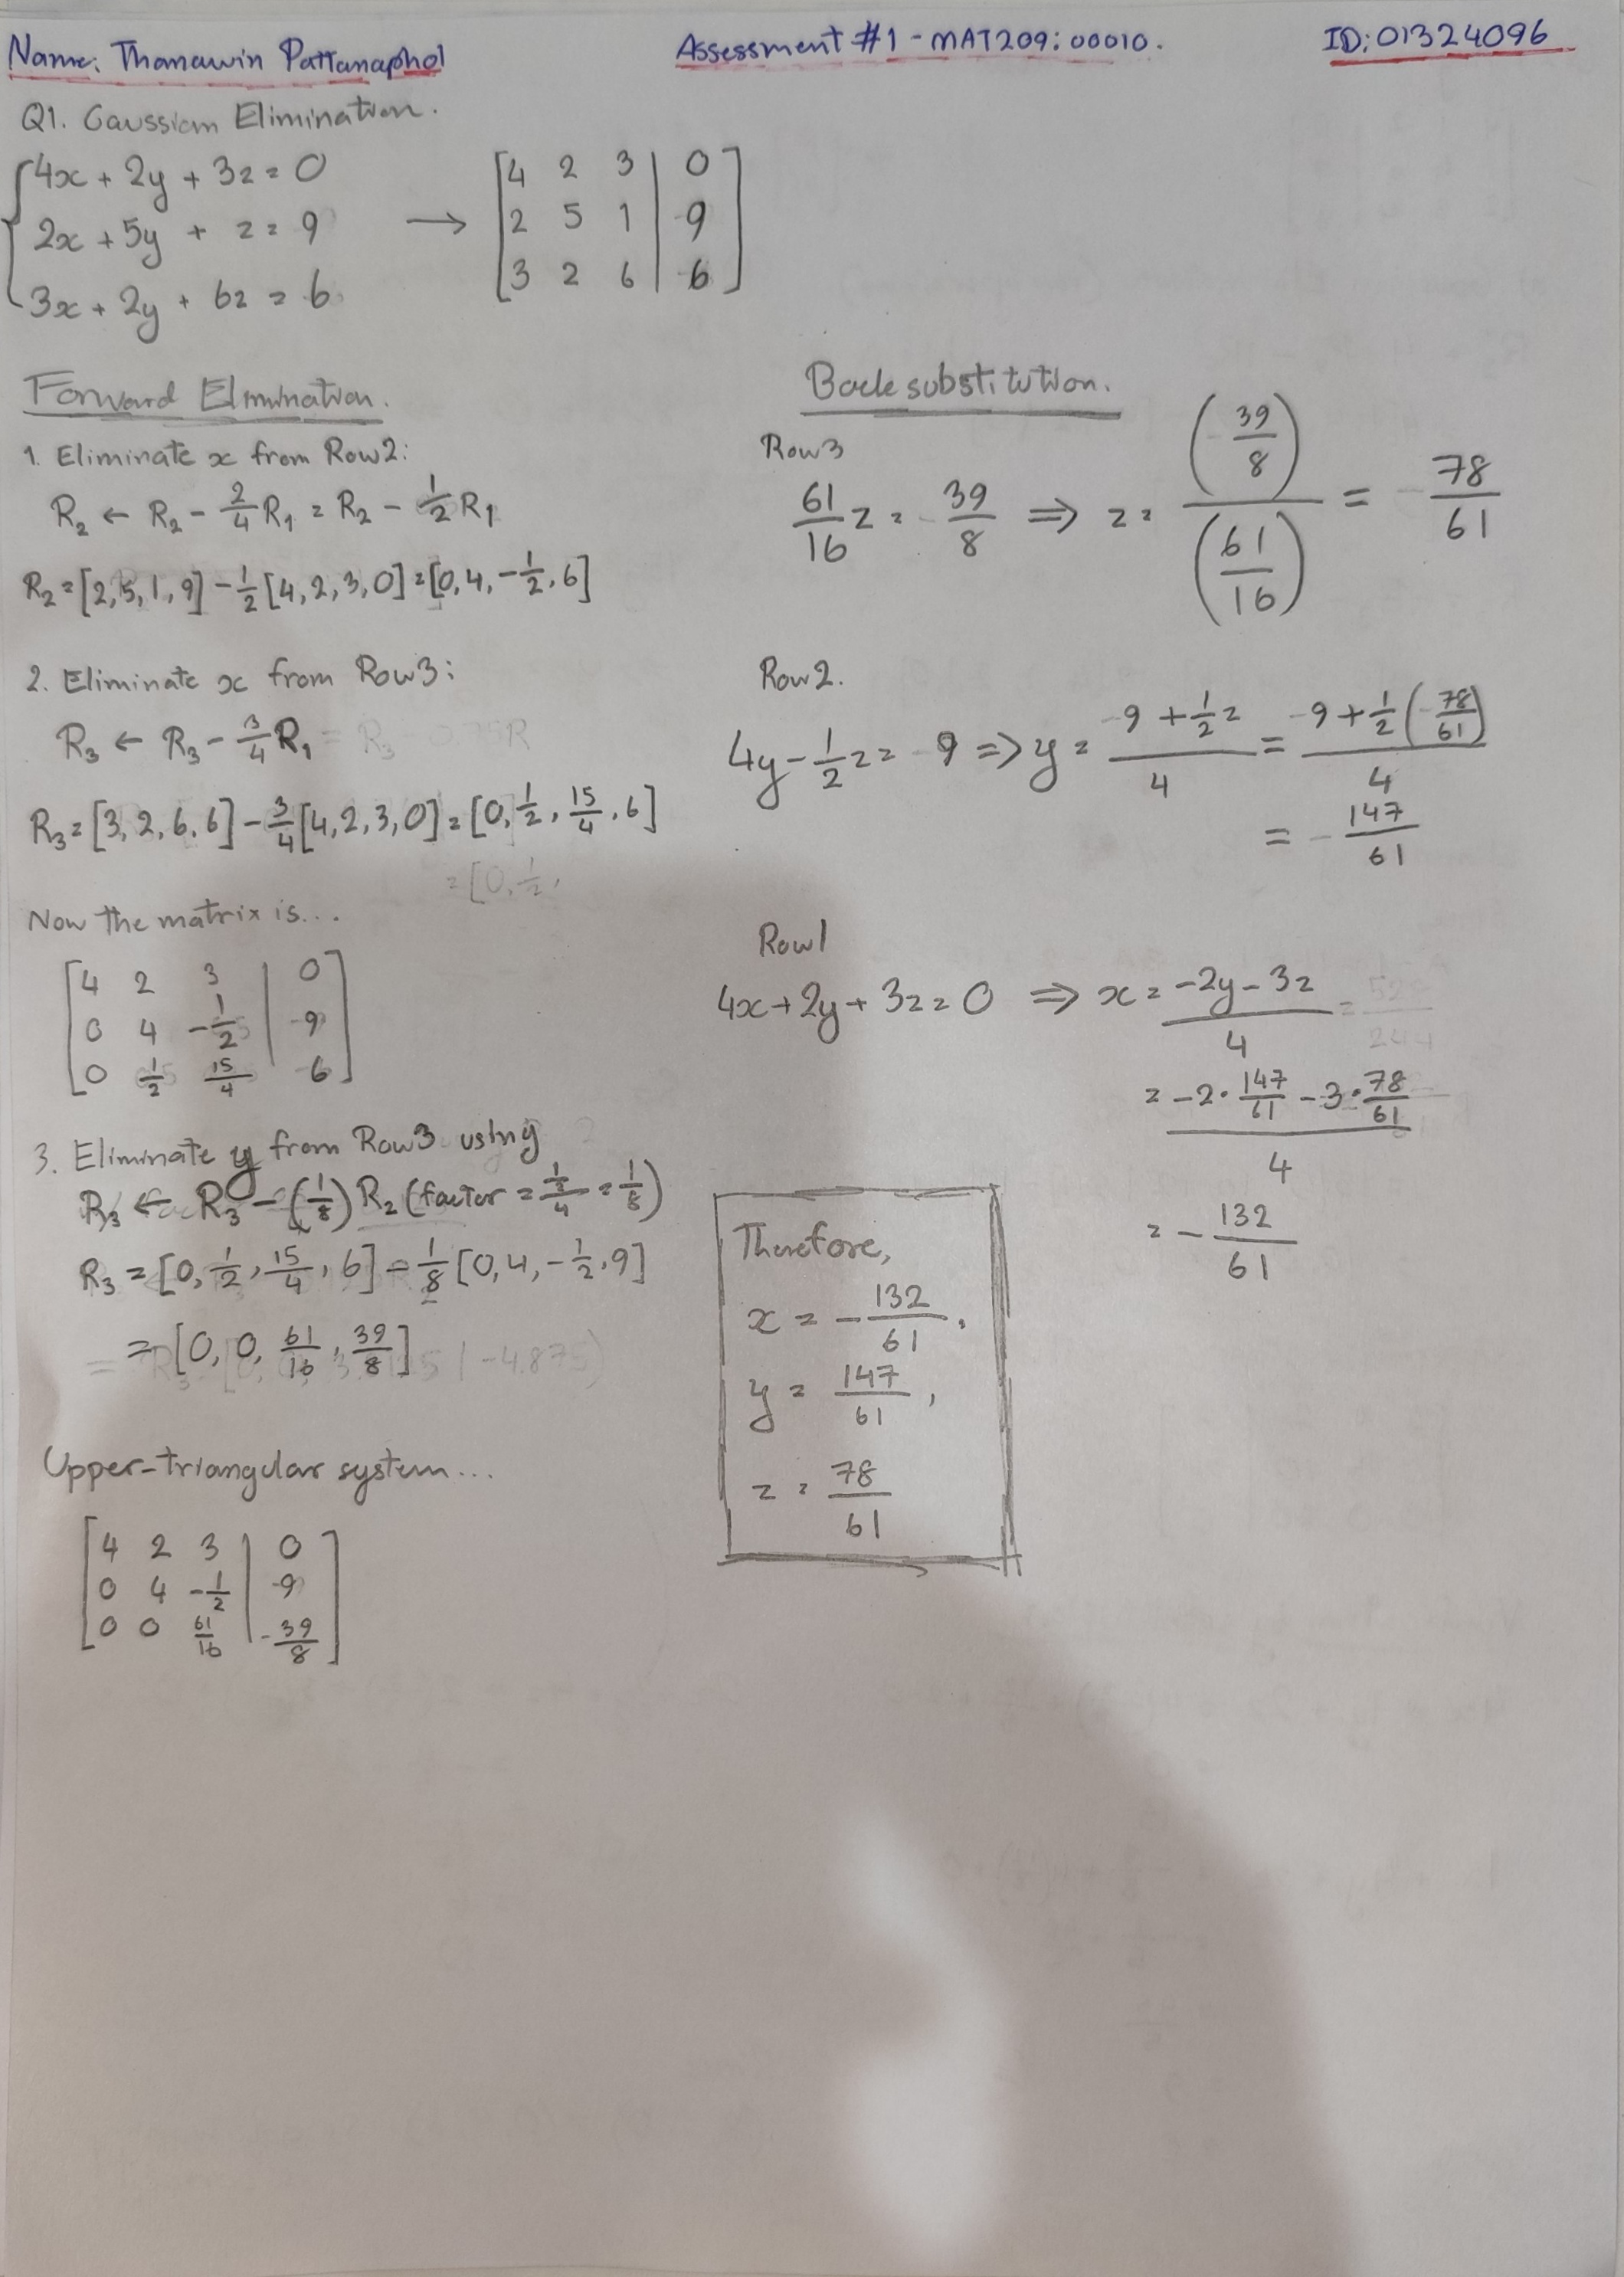 Name: Thanawin Pattanaphol
Assessment #1 - MAT209: 00010.
ID: 01324096
Q1. Gaussian Elimination.
4x + 2y + 3z = 0
2x + 5y + z = 9
3x + 2y + 6z = 6
→
[4 2 3 | 0]
[2 5 1 | 9]
[3 2 6 | 6]
Forward Elimination.
1. Eliminate x from Row2:
R₂ ← R₂ - 2/4 R₁ = R₂ - 1/2 R₁
R₂ = [2, 5, 1, 9] - 1/2 [4, 2, 3, 0] = [0, 4, -1/2, 6]
2. Eliminate x from Row3:
R₃ ← R₃ - 3/4 R₁
R₃ = [3, 2, 6, 6] - 3/4 [4, 2, 3, 0] = [0, 1/2, 15/4, 6]
Now the matrix is...
[4 2 3 | 0]
[0 4 -1/2 | 9]
[0 1/2 15/4 | 6]
3. Eliminate y from Row3 using
R₃ ← R₃ - (1/8) R₂ (factor = 1/2/4 = 1/8)
R₃ = [0, 1/2, 15/4, 6] - 1/8 [0, 4, -1/2, 9]
= [0, 0, 61/16, 39/8]
Upper-triangular system...
[4 2 3 | 0]
[0 4 -1/2 | 9]
[0 0 61/16 | -39/8]
Back substitution.
Row3
61/16 z = 39/8 ⇒ z = (39/8)/(61/16) = 78/61
Row2.
4y - 1/2 z = 9 ⇒ y = (9 + 1/2 z)/4 = (9 + 1/2 (78/61))/4
= 147/61
Row1
4x + 2y + 3z = 0 ⇒ x = (-2y - 3z)/4
= (-2 · 147/61 - 3 · 78/61)/4
= -132/61
Therefore,
x = -132/61,
y = 147/61,
z = 78/61